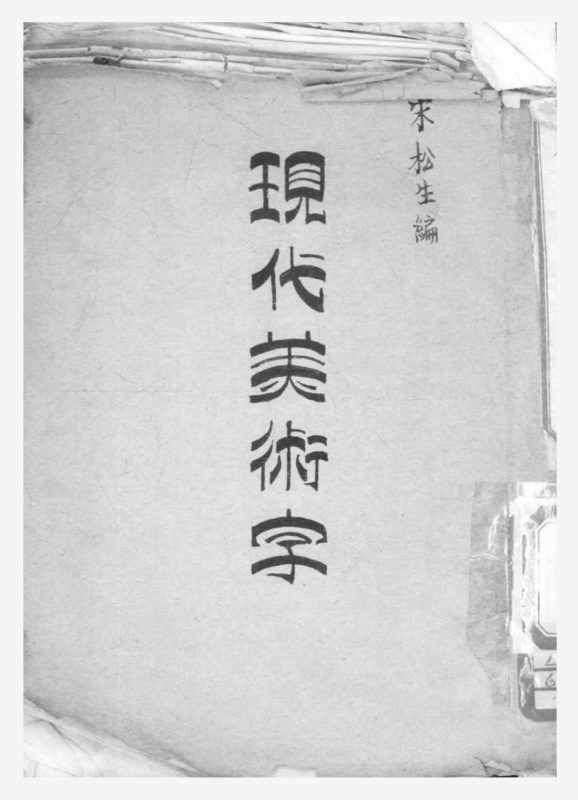 宋松生編
現代美術字